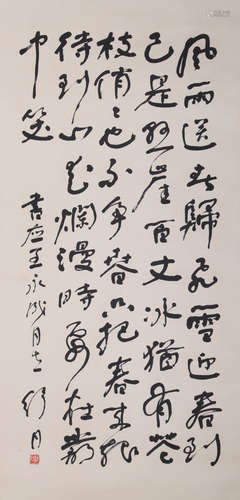 風雨送春歸飛雪迎春到
已是悬崖百丈冰犹有花
枝俏〻也不争春只把春来报
待到山花爛漫時她在叢
中笑
書应王永成同志
舒同